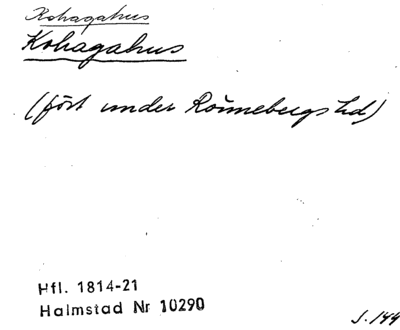 Kohagahus
Kohagahus
(fört under Rönnebergs hd)
Hfl. 1814-21
Halmstad Nr 10290
S. 144